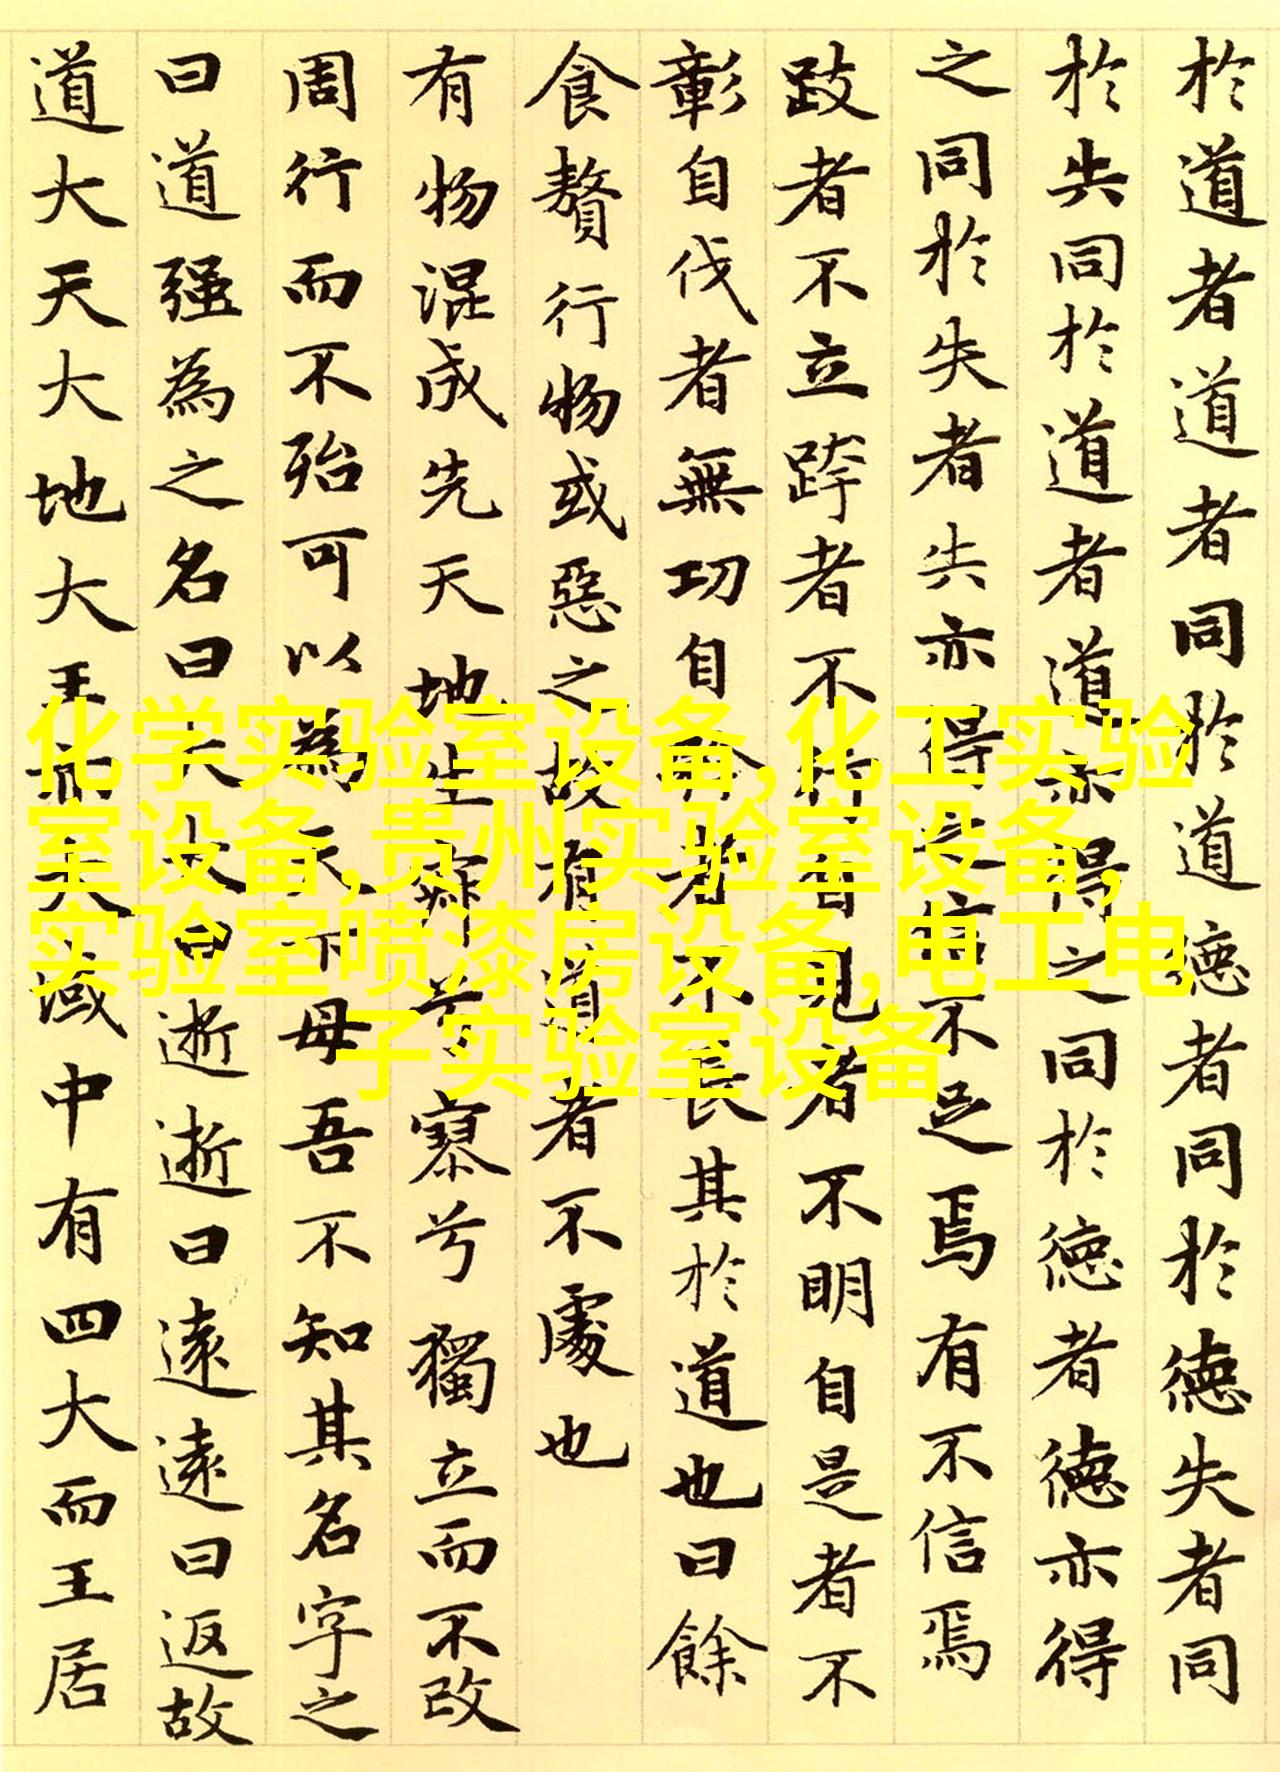 於道者道者同於道德者同於德失者同
於失同於道者道亦得之同於德者德亦得
之同於失者失亦得之信不足焉有不信焉
跂者不立跨者不行自見者不明自是者不
彰自伐者無功自矜者不長其於道也曰餘
食贅行物或惡之故有道者不處也
有物混成先天地生寂兮寥兮獨立而不改
周行而不殆可以為天下母吾不知其名字之
曰道强為之名曰大大曰逝逝曰遠遠曰返故
道大天大地大王亦大域中有四大而王居
化学实验室设备,化工实验
室设备,贵州实验室设备,
实验室喷漆房设备,电工电
子实验室设备